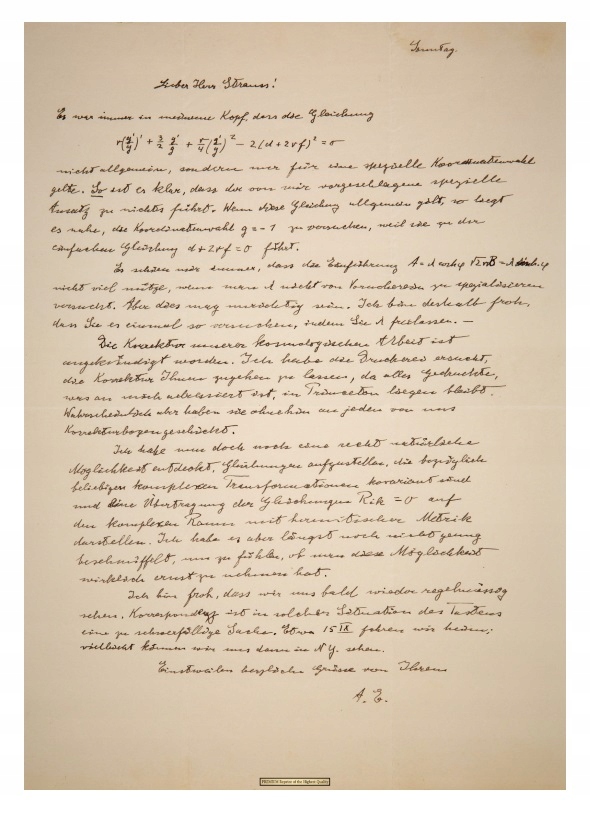 Sonntag.
Lieber Herr Strauss!
Es war immer in meinem Kopf dass die Gleichung
r(g'/g)' + 3/2 g'/g + r/4 (g'/g)² − 2(d+2rf)² = 0
nicht allgemein, sondern nur für eine spezielle Koordinatenwahl
gelte. So ist es klar, dass der von mir vorgeschlagene spezielle
Ansatz zu nichts führt. Wenn diese Gleichung allgemein gilt, so liegt
es nahe, die Koordinatenwahl g = -1 zu versuchen, weil sie zu der
einfachen Gleichung d+2rf = 0 führt.
Es schien mir immer, dass die Einführung
nicht viel nütze, wenn man nicht von Vornherein zu spezialisieren
versucht. Aber dies mag unrichtig sein. Ich bin deshalb froh,
dass Sie es einmal so versuchen, indem Sie freilassen. —
Die Korrektur unserer kosmologischen Arbeit ist
angekündigt worden. Ich habe die Druckerei ersucht,
die Korrektur Ihnen zugehen zu lassen, da alles Gedruckte,
was an mich adressiert ist, in Princeton liegen bleibt.
Wahrscheinlich aber haben sie ohnehin an jeden von uns
Korrekturbogen geschickt.
Ich habe nun doch noch eine recht natürliche
Möglichkeit entdeckt, Gleichungen aufzustellen, die bezüglich
beliebiger komplexen Transformationen kovariant sind
und eine Übertragung der Gleichungen Rik = 0 auf
den komplexen Raum mit hermitischer Metrik
darstellen. Ich habe es aber längst noch nicht genug
beschnüffelt, um zu fühlen, ob man diese Möglichkeit
wirklich ernst zu nehmen hat.
Ich bin froh, dass wir uns bald wieder regelmässig
sehen. Korrespondenz ist in solcher Situation des Tastens
eine zu schwerfällige Sache. Etwa 15 IX fahren wir heim;
vielleicht können wir uns dann in N.Y. sehen.
Einstweilen herzliche Grüsse von Ihrem
A. E.